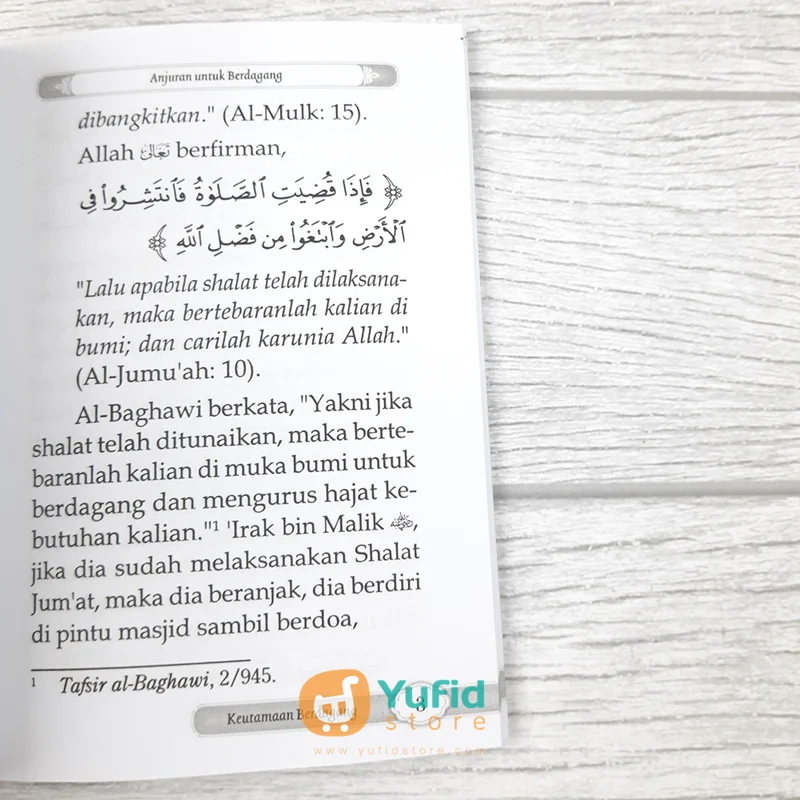 Anjuran untuk Berdagang
dibangkitkan." (Al-Mulk: 15).
Allah تَعَالَى berfirman,
﴿ فَإِذَا قُضِيَتِ ٱلصَّلَوٰةُ فَٱنتَشِرُوا۟ فِى
ٱلْأَرْضِ وَٱبْتَغُوا۟ مِن فَضْلِ ٱللَّهِ ﴾
"Lalu apabila shalat telah dilaksana-
kan, maka bertebaranlah kalian di
bumi; dan carilah karunia Allah."
(Al-Jumu'ah: 10).
Al-Baghawi berkata, "Yakni jika
shalat telah ditunaikan, maka berte-
baranlah kalian di muka bumi untuk
berdagang dan mengurus hajat ke-
butuhan kalian."¹ 'Irak bin Malik ؓ,
jika dia sudah melaksanakan Shalat
Jum'at, maka dia beranjak, dia berdiri
di pintu masjid sambil berdoa,
¹ Tafsir al-Baghawi, 2/945.
Keutamaan Berdagang 3
Yufid
store
www.yufidstore.com